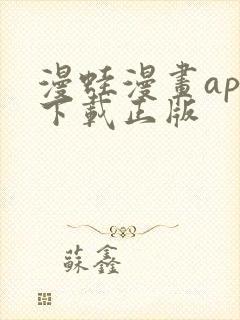 漫蛙漫畫ap
下載正版
蘇鑫